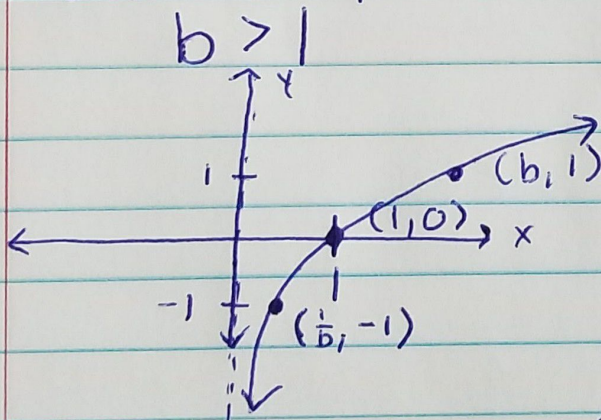 b > 1
y
1
(b, 1)
(1, 0)
x
1
-1
(1/b, -1)